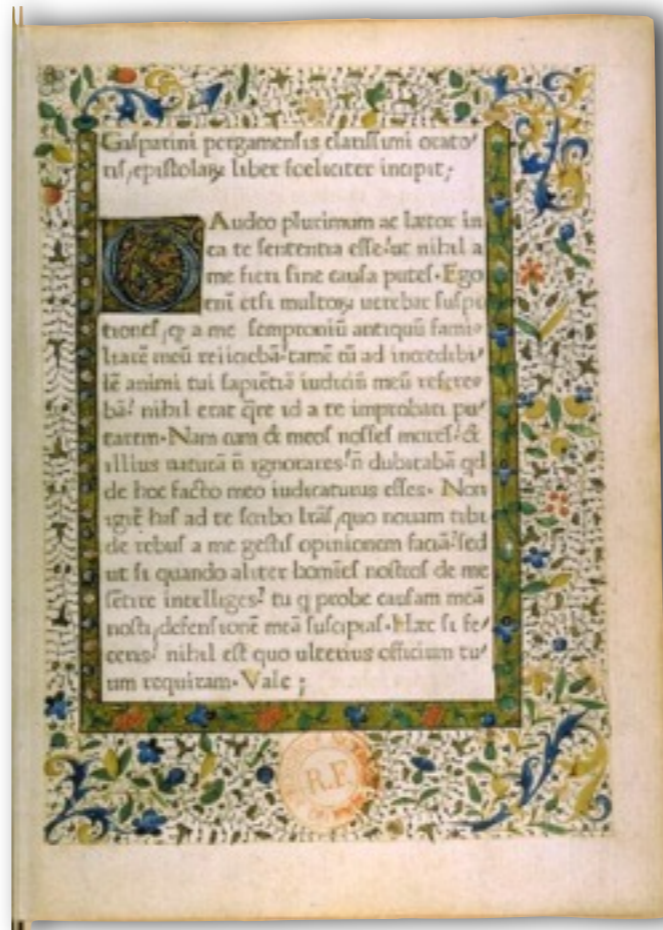 Gasparini pergamensis clarissimi orato'
ris, epistolaꝝ liber fœliciter incipit;
GAudeo plurimum ac lætor in
ea te sententia esse: ut nihil a
me fieri sine causa putes. Ego
eni etsi multoꝝ uerebar suspi
tiones, ꝙ a me semproniū antiquū fami'
liarē meū reiiciebā: tamē cū ad incredibi'
lē animi tui sapiētiā iudiciū meū refere'
bā: nihil erat q̄re id a te improbari pu'
tarem. Nam cum & meos nosses mores: &
illius naturā nō ignorares: nō dubitabā qd
de hoc facto meo iudicaturus esses. Non
igiť has ad te scribo lr̄as, quo nouam tibi
de rebus a me gestis opinionem faciā: sed
ut si quando aliter homīes nostros de me
sētire intelliges: tu q probe causam meā
nosti, defensionē meā suscipias. Hæc si fe'
ceris: nihil est quo ulterius officium tu'
um requiram. Vale;
R.F.